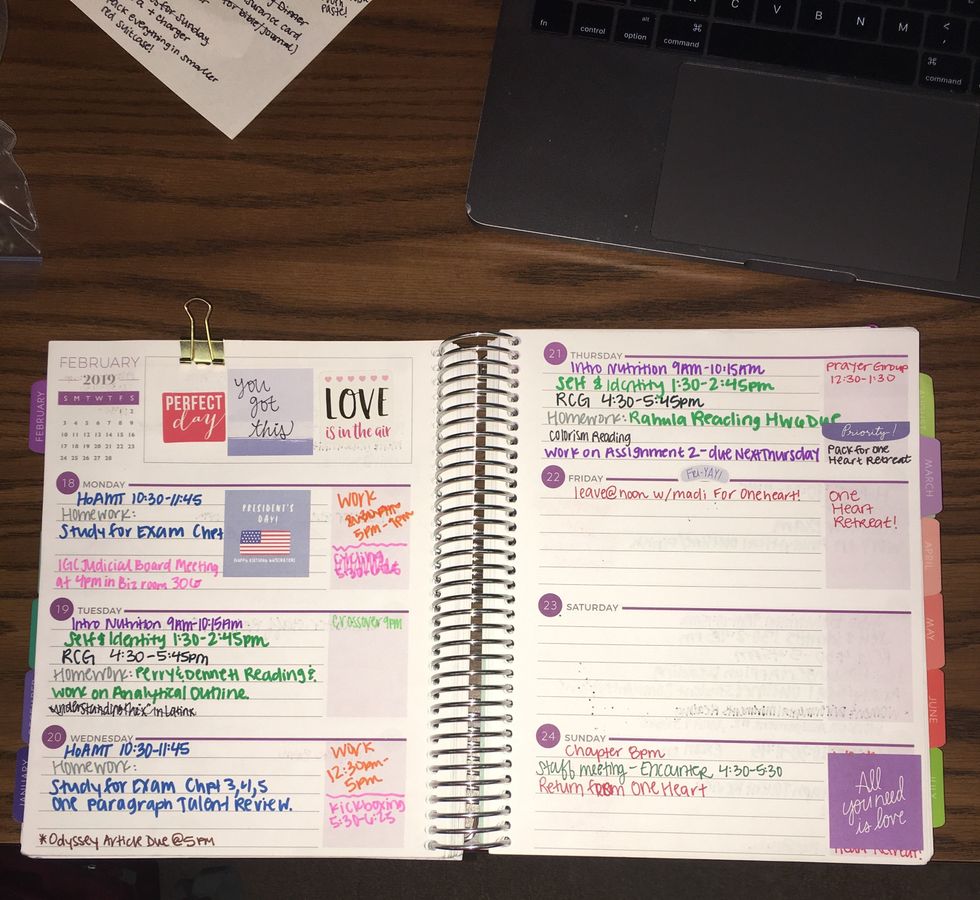 Dinner
insurance card
for bible/journal)
paste!
for Sunday
+ charger
pack everything in smaller
red suitcase!
fn
control
alt
option
⌘
command
C
V
B
N
M
<
,
⌘
command
FEBRUARY
2019
S M T W T F S
1 2
3 4 5 6 7 8 9
10 11 12 13 14 15 16
17 18 19 20 21 22 23
24 25 26 27 28
PERFECT
day
you
got
this
LOVE
is in the air
18 MONDAY
HoAMT 10:30-11:45
Homework:
Study for Exam Chpt
IGC Judicial Board Meeting
at 4pm in Biz room 306
PRESIDENT'S
DAY!
WORK
5pm-9pm
cycling
19 TUESDAY
Intro Nutrition 9AM-10:15AM
Self & Identity 1:30-2:45pm
RCG 4:30-5:45pm
Homework: Perry & Dennett Reading &
work on Analytical Outline.
understanding the "x" in Latinx
Crossover 9pm
20 WEDNESDAY
HoAMT 10:30-11:45
Homework:
Study for Exam Chpt 3,4,5
One Paragraph Talent Review.
*Odyssey Article Due @ 5PM
WORK
12:30pm-
5pm
Kickboxing
5:30-6:25
21 THURSDAY
Intro Nutrition 9AM-10:15AM
Self & Identity 1:30-2:45pm
RCG 4:30-5:45pm
Homework: Rahula Reading HW6 Due
Colorism Reading
work on Assignment 2-due Next Thursday
Prayer Group
12:30-1:30
Priority!
Pack for One
Heart Retreat
22 FRIDAY
Fri-YAY!
leave @ noon w/madi For Oneheart!
One
Heart
Retreat!
23 SATURDAY
24 SUNDAY
Chapter 8pm
Staff meeting - Encounter 4:30-5:30
Return from OneHeart
All
you need
is love
Heart Retreat!
FEBRUARY
JANUARY
MARCH
APRIL
MAY
JUNE
JULY